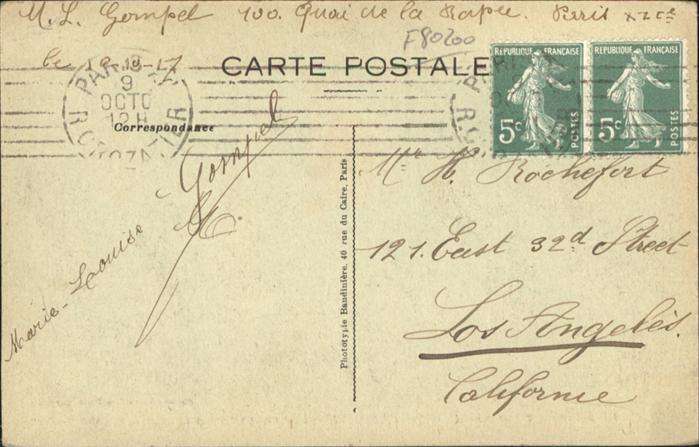 M. L. Gompel 100. Quai de la Rapée. Paris XIIe
F80200
Le 18-10-17
CARTE POSTALE
PARIS
9
OCTO
12H
Correspondance
Gompel
Marie-Louise
Phototypie Baudinière, 40 rue du Caire, Paris
RÉPUBLIQUE FRANÇAISE
5c
POSTES
RÉPUBLIQUE FRANÇAISE
5c
POSTES
Mr H. Rochefort
121. East 32d Street
Los Angelès.
Californie